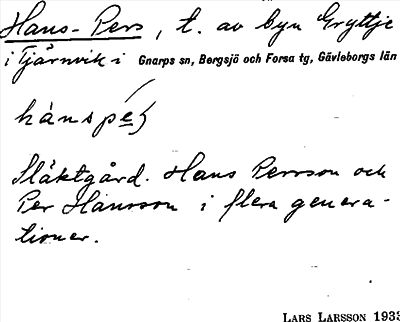 Hans-Pers, t. av byn Gryttje
i Tjärnvik i Gnarps sn, Bergsjö och Forsa tg, Gävleborgs län
hánspe̱s
Släktgård. Hans Persson och
Per Hansson i flera genera-
tioner.
LARS LARSSON 1933